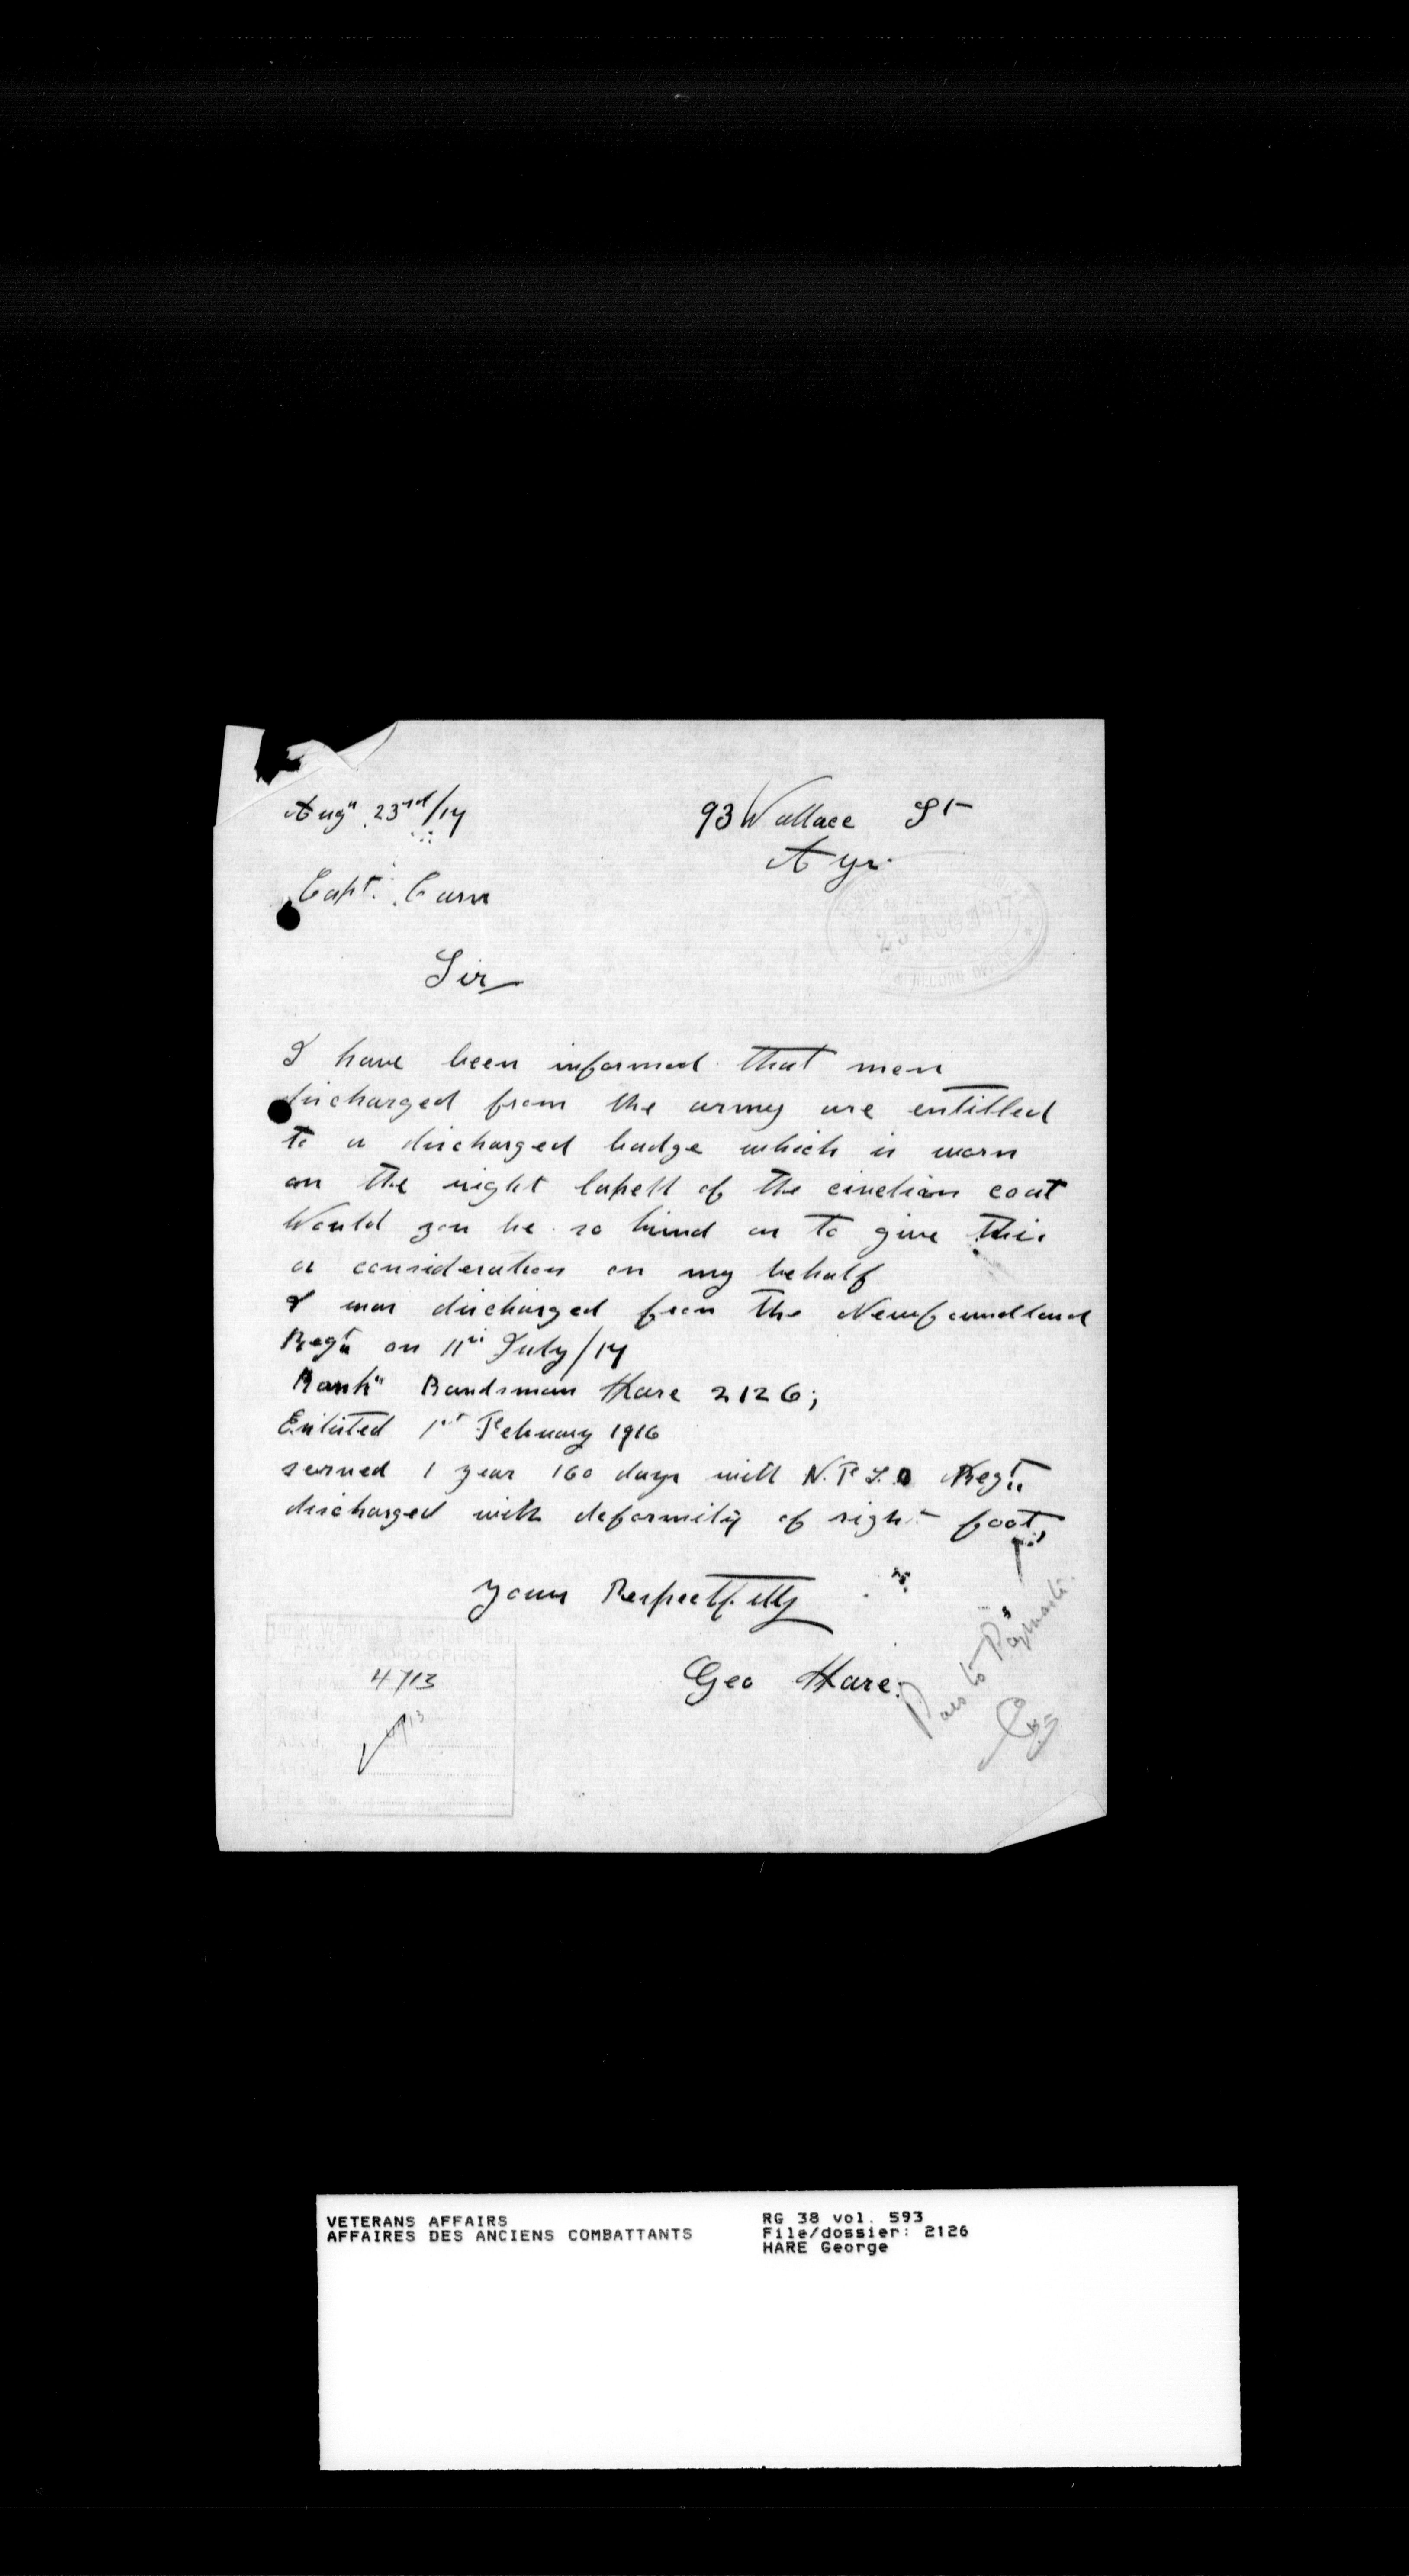 Aug" 23rd/17
93 Wallace St
Ayr.
Capt. Carn
Sir
I have been informed that men
discharged from the army are entitled
to a discharged badge which is worn
on the right lapell of the civilian coat
Would you be so kind as to give this
a consideration on my behalf
I was discharged from the Newfoundland
Regt on 11th July/17
Rank" Bandsman Hare 2126;
Enlisted 1st February 1916
served 1 year 160 days with N.F.L.D Regt
discharged with deformity of right foot,
Yours Respectfully
Geo Hare.
Pass to Paymaster
AUG 1917
RECORD OFFICE
RECORD OFFICE
4713
VETERANS AFFAIRS
AFFAIRES DES ANCIENS COMBATTANTS
RG 38 vol. 593
File/dossier: 2126
HARE George